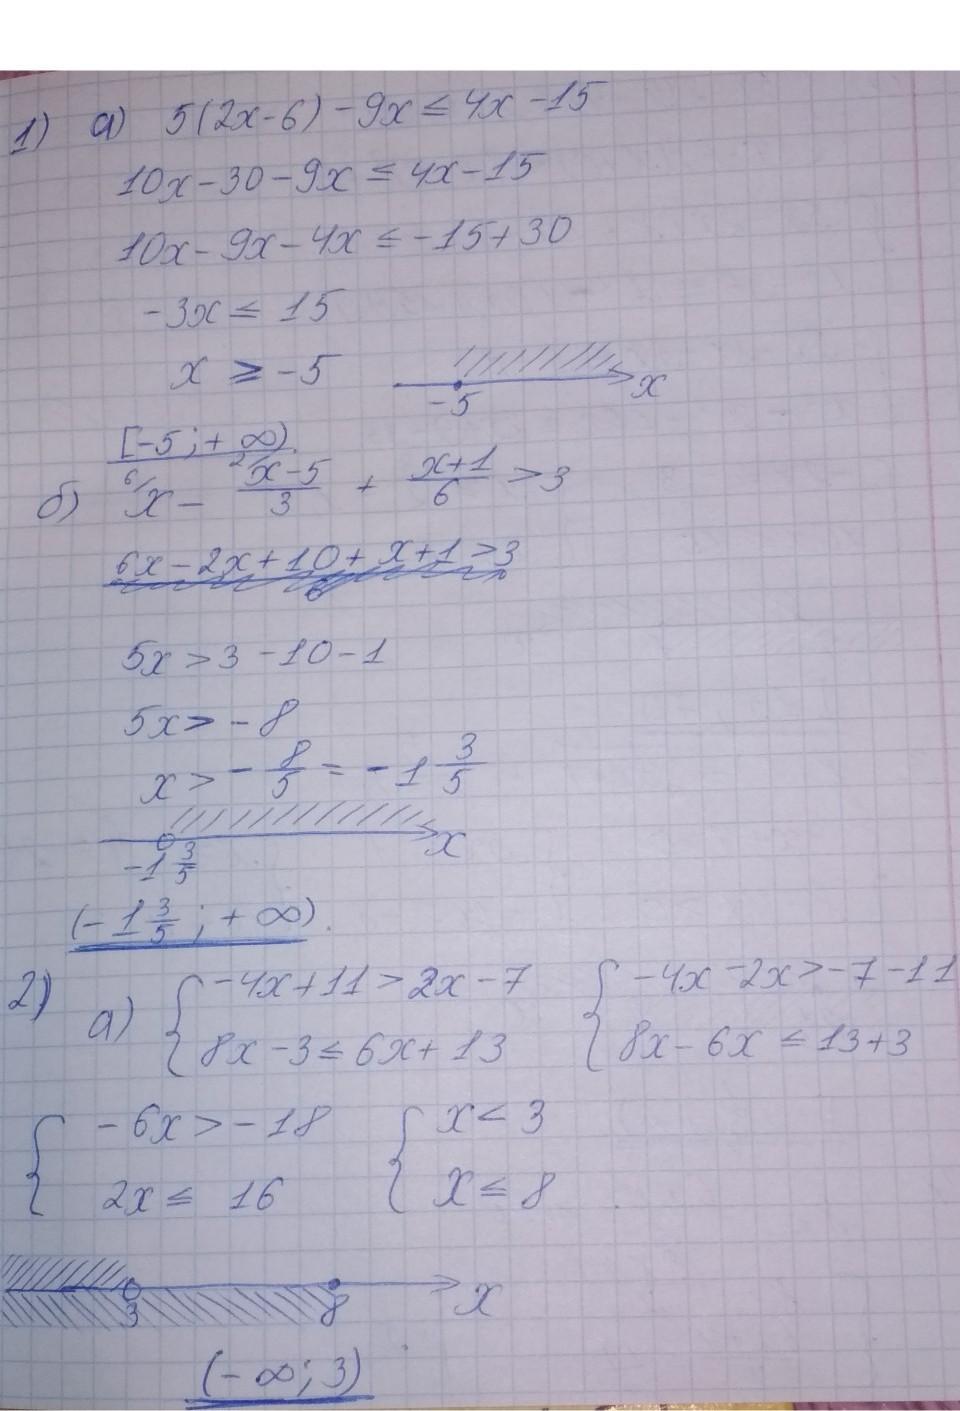 1) а) 5(2x-6)-9x ≤ 4x-15
10x-30-9x ≤ 4x-15
10x-9x-4x ≤ -15+30
-3x ≤ 15
x ≥ -5
-5 x
[-5; +∞).
б) 6/x - 2/(x-5)/3 + (x+1)/6 > 3
6x-2x+10+x+1 > 3
5x > 3-10-1
5x > -8
x > -8/5 = -1 3/5
-1 3/5 x
(-1 3/5; +∞).
2) а) { -4x+11 > 2x-7 { -4x-2x > -7-11
8x-3 ≤ 6x+13 8x-6x ≤ 13+3
{ -6x > -18 { x < 3
2x ≤ 16 x ≤ 8
3 8 x
(-∞; 3)